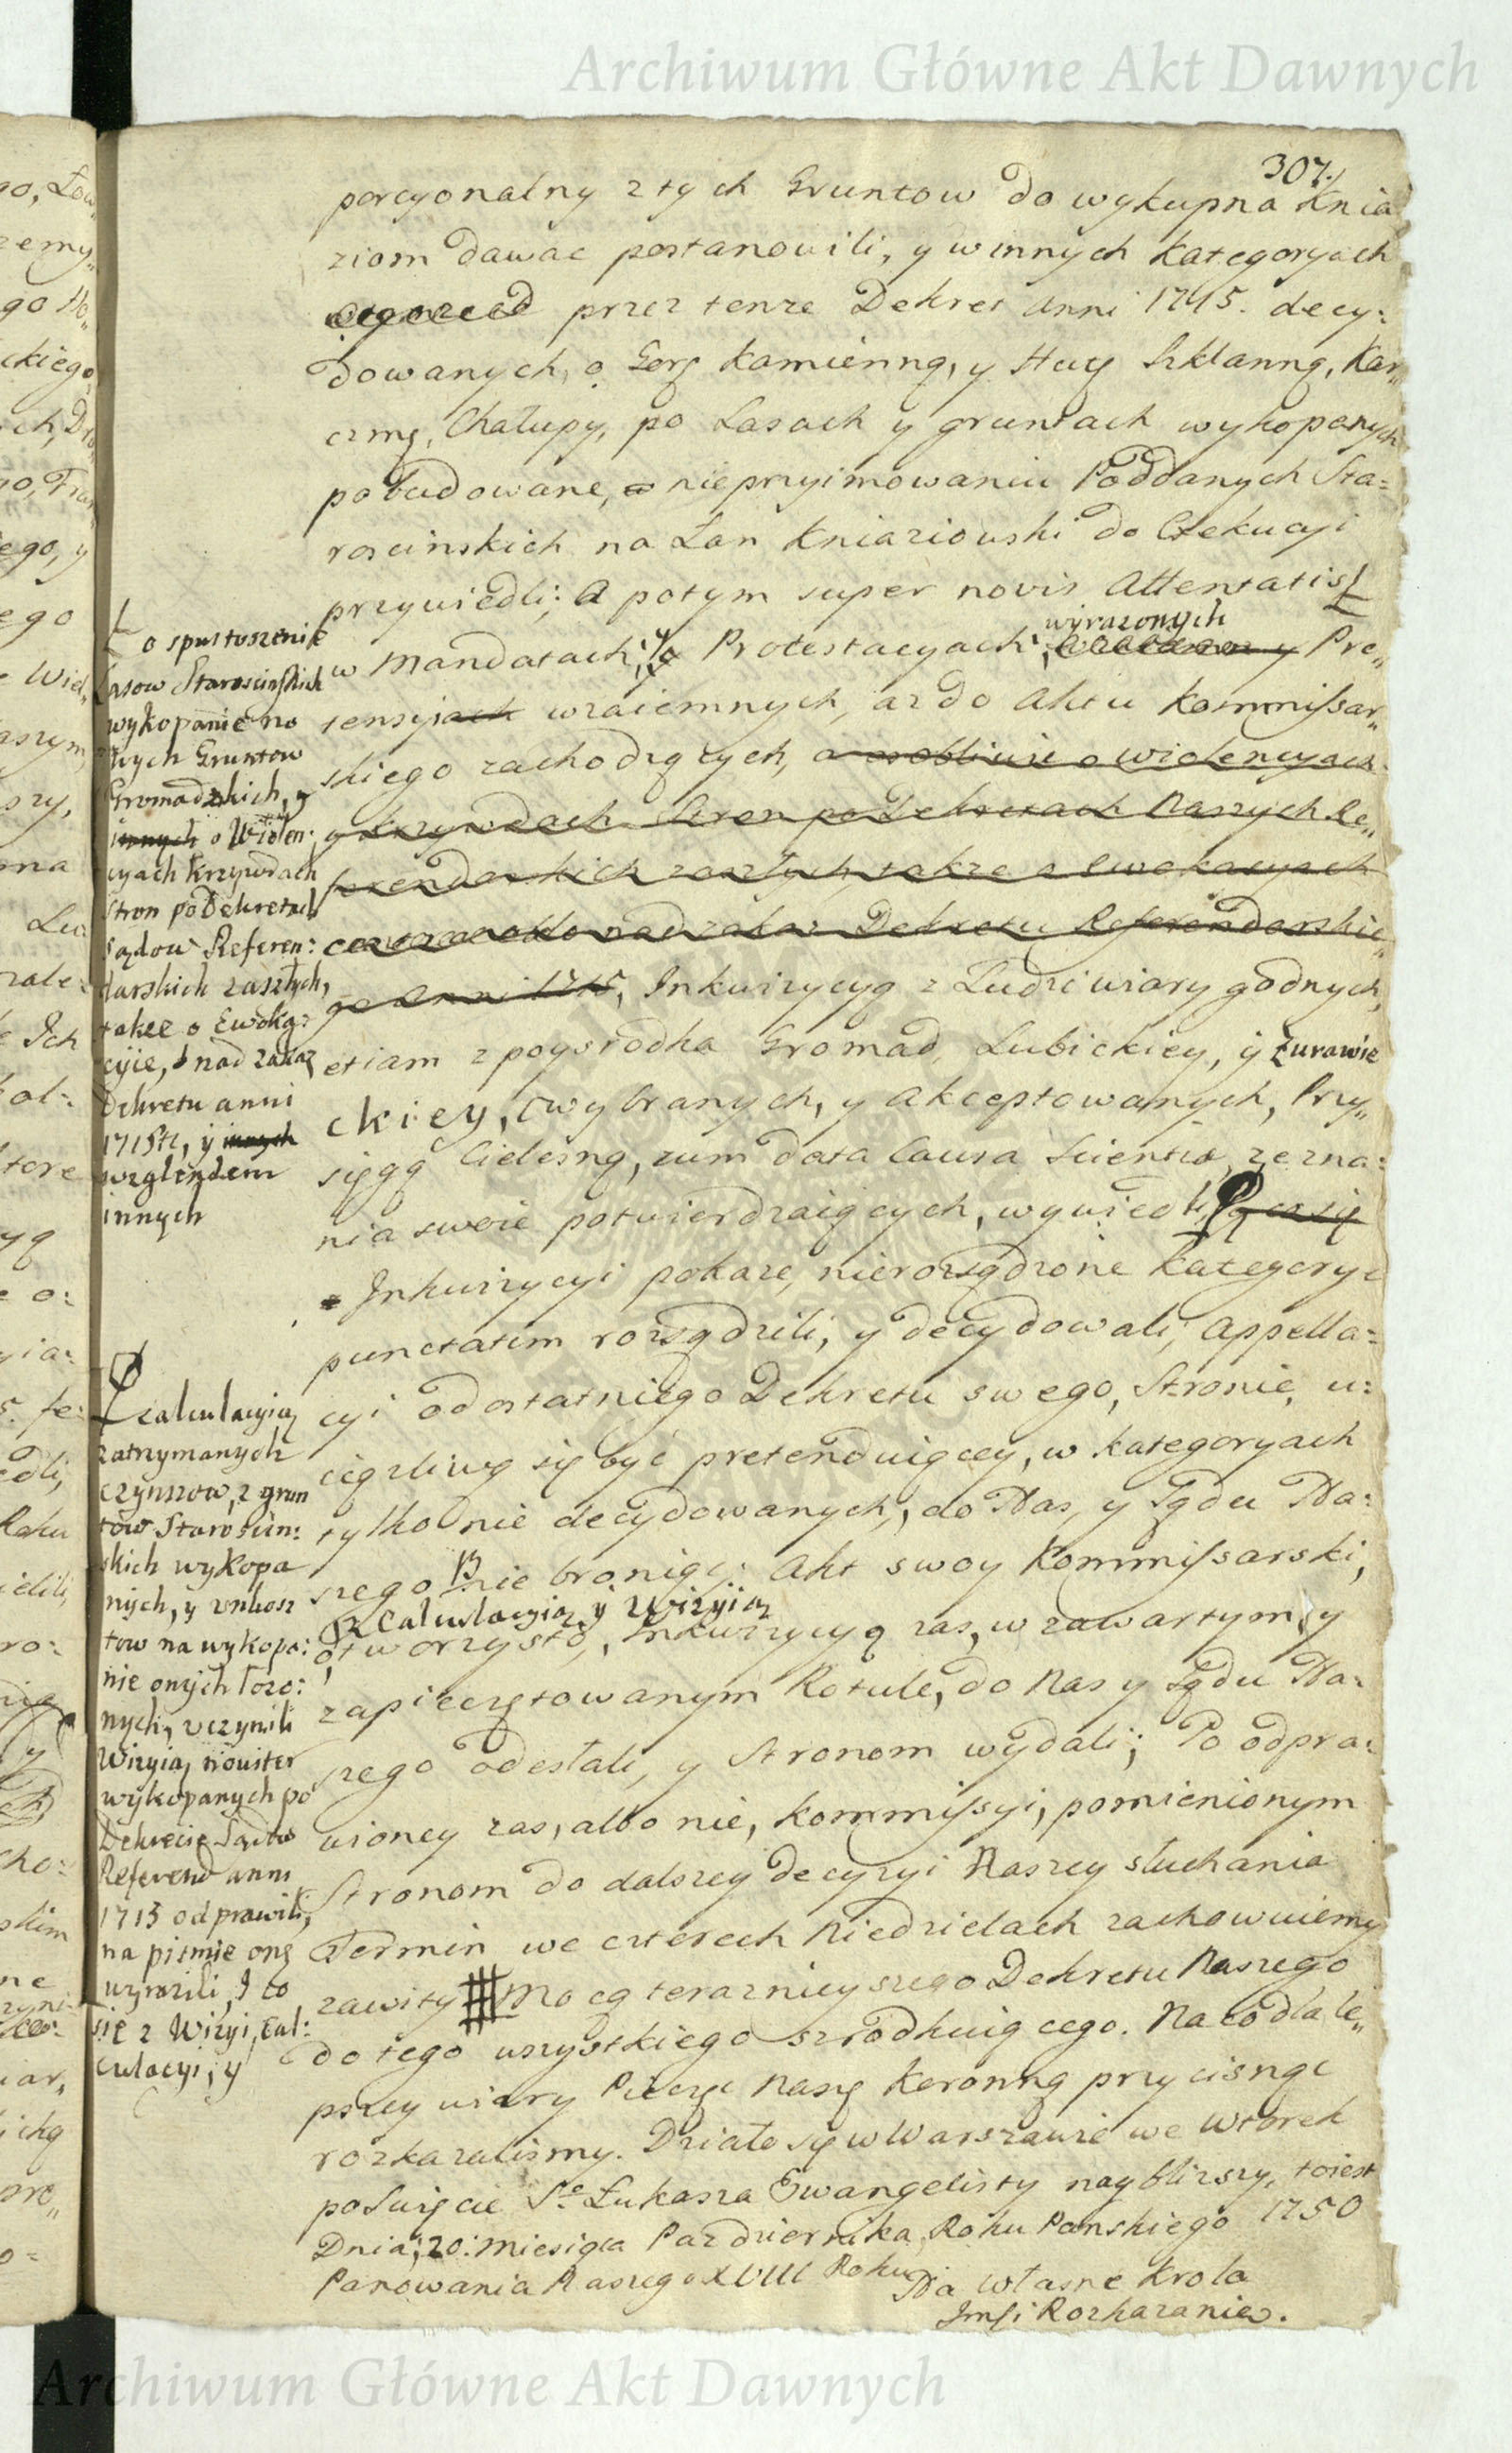 Archiwum Główne Akt Dawnych
307.
porcyonalny z tych Gruntow do wykupna Knia
ziom dawac postanowili, y w innych Kategoryach
przez tenze Dekret Anni 1745. decy:
dowanych, o Gorę Kamienną, y Hutę Szklanną, Kar„
czmę, Chałupy, po Lasach y gruntach wykopanych
pobudowane, o nieprzyimowaniu Poddanych Sta=
roscinskich na Łan Kniaziowski do Exekucyi
przywiedli; A potym super novis Attentatis
wyrazonych
w Mandatach, y Protestacyach, Pre„
tensyjach wzaiemnych, az do Aktu Kommissar„
skiego zachodzących, a osobliwie o wiolencyach
y krzywdach Stron po Dekretach Naszych Re„
ferendarskich zaszłych, takze o Ewokacyach
nad zakaz Dekretu Referendarskie„
go Anni 1745, Inkwizycyą z Ludzi wiary godnych,
etiam z posrodka Gromad, Lubickiey, y Zurawie
ckiey, wybranych, y akceptowanych, Przy„
sięgą Cielesną, cum data causa scientiæ, zezna:
nia swoie potwierdzaiących, wywiedli,
Inkwizycyi pokaze, nierozsądzone Kategorye
punctatim rozsądzili, y decydowali, Appella=
cyi od ostatniego Dekretu swego, Stronie, u:
ciązliwą się byc pretenduiącey, w Kategoryach
tylko nie decydowanych, do Nas, y Sądu Na:
szego nie broniąc; Akt swoy Kommissarski,
z Calculacyią y Wizyią
otworzysto, Inkwizycyą zas, w zawartym, y
zapieczętowanym Rotule, do Nas y Sądu Na:
szego odesłali, y Stronom wydali; Po odpra:
wioney zas, albo nie, Kommissyi, pomienionym
Stronom do dalszey decyzyi Naszey słuchania
Termin we czterech Niedzielach zachowuiemy
zawity Mocą teraznieyszego Dekretu Naszego
do tego wszystkiego szrodkuiącego. Na co dla le„
pszey wiary Pieczęc Naszę Koronną przycisnąc
rozkazalismy. Działo się w Warszawie we Wtorek
po Swięcie Sgo Łukasza Ewangelisty naybliszszy, toiest
Dnia, 20: Miesiąca Pazdziernika, Roku Panskiego 1750
Panowania Naszego XVIII Roku
Na własne Krola
Jmsi Rozkazanie.
o spustoszenie
Lasow Staroscinskich
wykopanie no
wych Gruntow
Gromadzkich, y
innych o Wiolen:
cyach Krzywdach
Stron po Dekretach
Sądow Referen:
darskich zaszłych,
takze o Ewoka:
cyie, nad zakaz
Dekretu anni
1715ti, y innych
względem
innych
calculacyią
zatrzymanych
czynszow, z grun
tow Staroscin:
skich wykopa
nych, y
tow na wykopa:
nie onych łozo:
nych, vczynili
Wizyią noviter
wykopanych po
Dekrecie Sądow
Referend anni
1715 odprawili,
na pismie onę
wyrazili, I co
się z Wizyi, Cal:
culacyi, y
Archiwum Główne Akt Dawnych